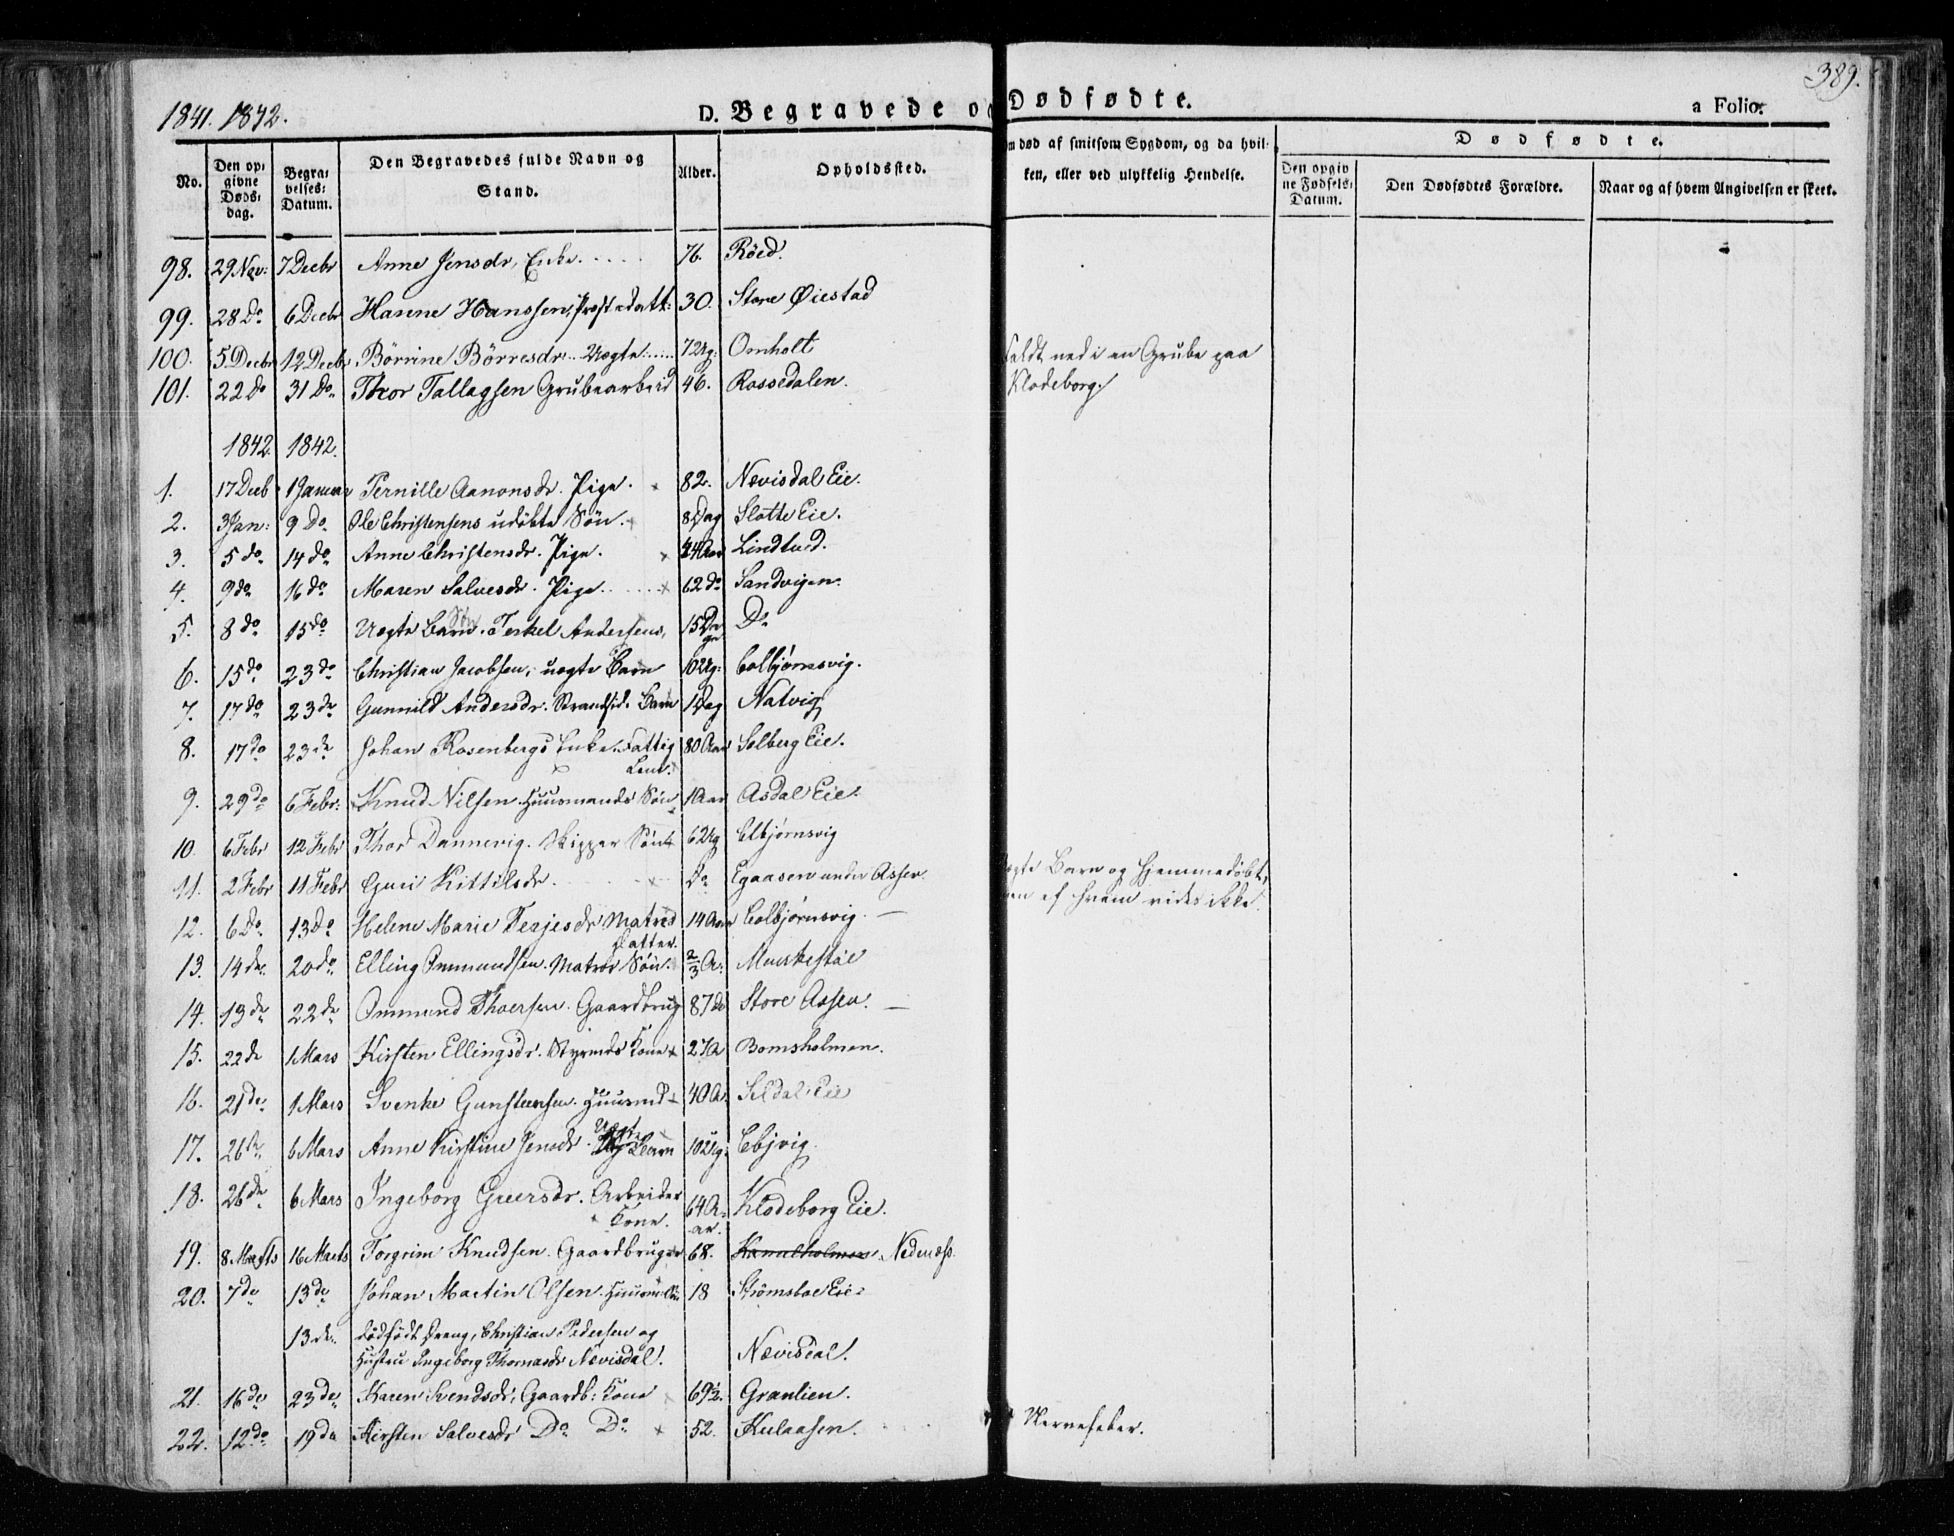 389.
1841. 1842.
D. Begravede o Dødfødte.
a Folio.
No.
Den opgivne Dødsdag.
Begravelses: Datum.
Den Begravedes fulde Navn og Stand.
Alder.
Opholdssted.
m død af smitsom Sygdom, og da hvilken, eller ved ulykkelig Hendelse.
Dødfødte.
Den opgivne Fødsels: Datum.
Den Dødfødtes Forældre.
Naar og af hvem Angivelsen er skeet.
98. 29 Nov: 7 Decbr Anne Jensdr, Enke 76. Röed.
99. 28 Do 6 Decbr Hanne Hanssen, Præstedatt: 30. Store Øiestad
100. 5. Decbr 12 Decbr Börrine Börresdr. Uægte 7 Ug: Omholt
faldt ned i en Grube paa
101. 22 Do 31 Do Thor Tallagsen Grubearbeid 46. Rossedalen.
Klodeborg.
1842 1842.
1. 17 Decb 1 Januar Pernille Aanonsdr. Pige. 82. Nævisdal Eie.
2. 3 Jan: 9 Do Ole Christensens udöbte Sön. 8 Dag Slotte Eie.
3. 5 do 14 do Anne Christensdr. Pige. 24 Aar Lindtved.
4. 9 do 16 do Maren Salvesdr. Pige 62 do Sandvigen.
5. 8 do 15 do Uægte Barn Sön. Terkel Andersens, 15 Dage Do
6. 15 do 23 do Christian Jacobsen, uægte Barn 10 Ug: Colbjørnsvig.
7. 17 do 23 do Gunnild Andersdr. Strandsid. Barn 1 Dag Natvig
8. 17 do 23 do Johan Rosenbergs Enke. Fattig Lem. 80 Aar Solberg Eie.
9. 29 do 6 Febr: Knud Nilsen. Huusmands Sön 1 Aar Asdal Eie.
10. 6 Febr 12 Febr Thor Dannevig. Skipper Sön 6 Ug Colbjørnsvig
11. 2 Febr 11 Febr Guri Kittilsdr. Do Egaasen under Assen.
ægte Barn og Hjemmedöbt,
en af hvem vides ikke.
12. 6 Do 13 Do Helene Marie Terjesdr Matros datter. 14 Aar Colbjørnsvig.
13. 14 do 20 do Elling Ommundsen. Matros Sön. 2/3 A: Muskestöe
14. 13 do 22 do Ommund Thorsen. Gaardbrug 87 do Store Assen.
15. 22 do 1 Mars Kirsten Ellingsdr. Styrmds Kone 27 A Bomsholmen.
16. 21 do 1 Mars Svenke Gunsteensen. Huusmd 40 A. Seldal Eie
17. 26 do 6 Mars Anne Kirstine Jensdr. Uægte Barn 10 Ug: Ebjvig
18. 26 do 6 Mars Ingeborg Greersdr. Arbeider Kone. 64 Aar. Klodeborg Eie.
19. 8 Marts 16 Marts Torgrim Knudsen. Gaardbruger 68. Nedenæss.
20. 7 do 13 do Johan Martin Olsen. Huusm: Sön 18 Strömsboe Eie
13 do dödfödt Dreng, Christian Pedersen og
Hustru Ingeborg Thomasdr Nævisdal. Nævisdal.
21. 16 do 23 do Karen Svendsdr, Gaardb: Kone 69½. Granlien.
22. 12 do 19 do Kirsten Salvesdr Do Do 52. Kulaasen.
Nervefeber.